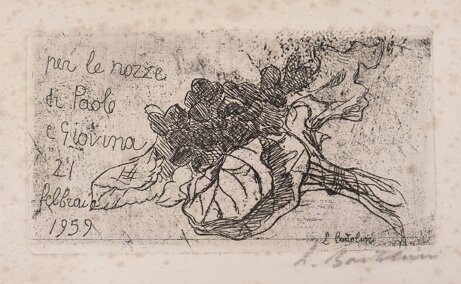 per le nozze
di Paolo
e Giovina
21
febbraio
1959
L Bartolini
L. Bartolini